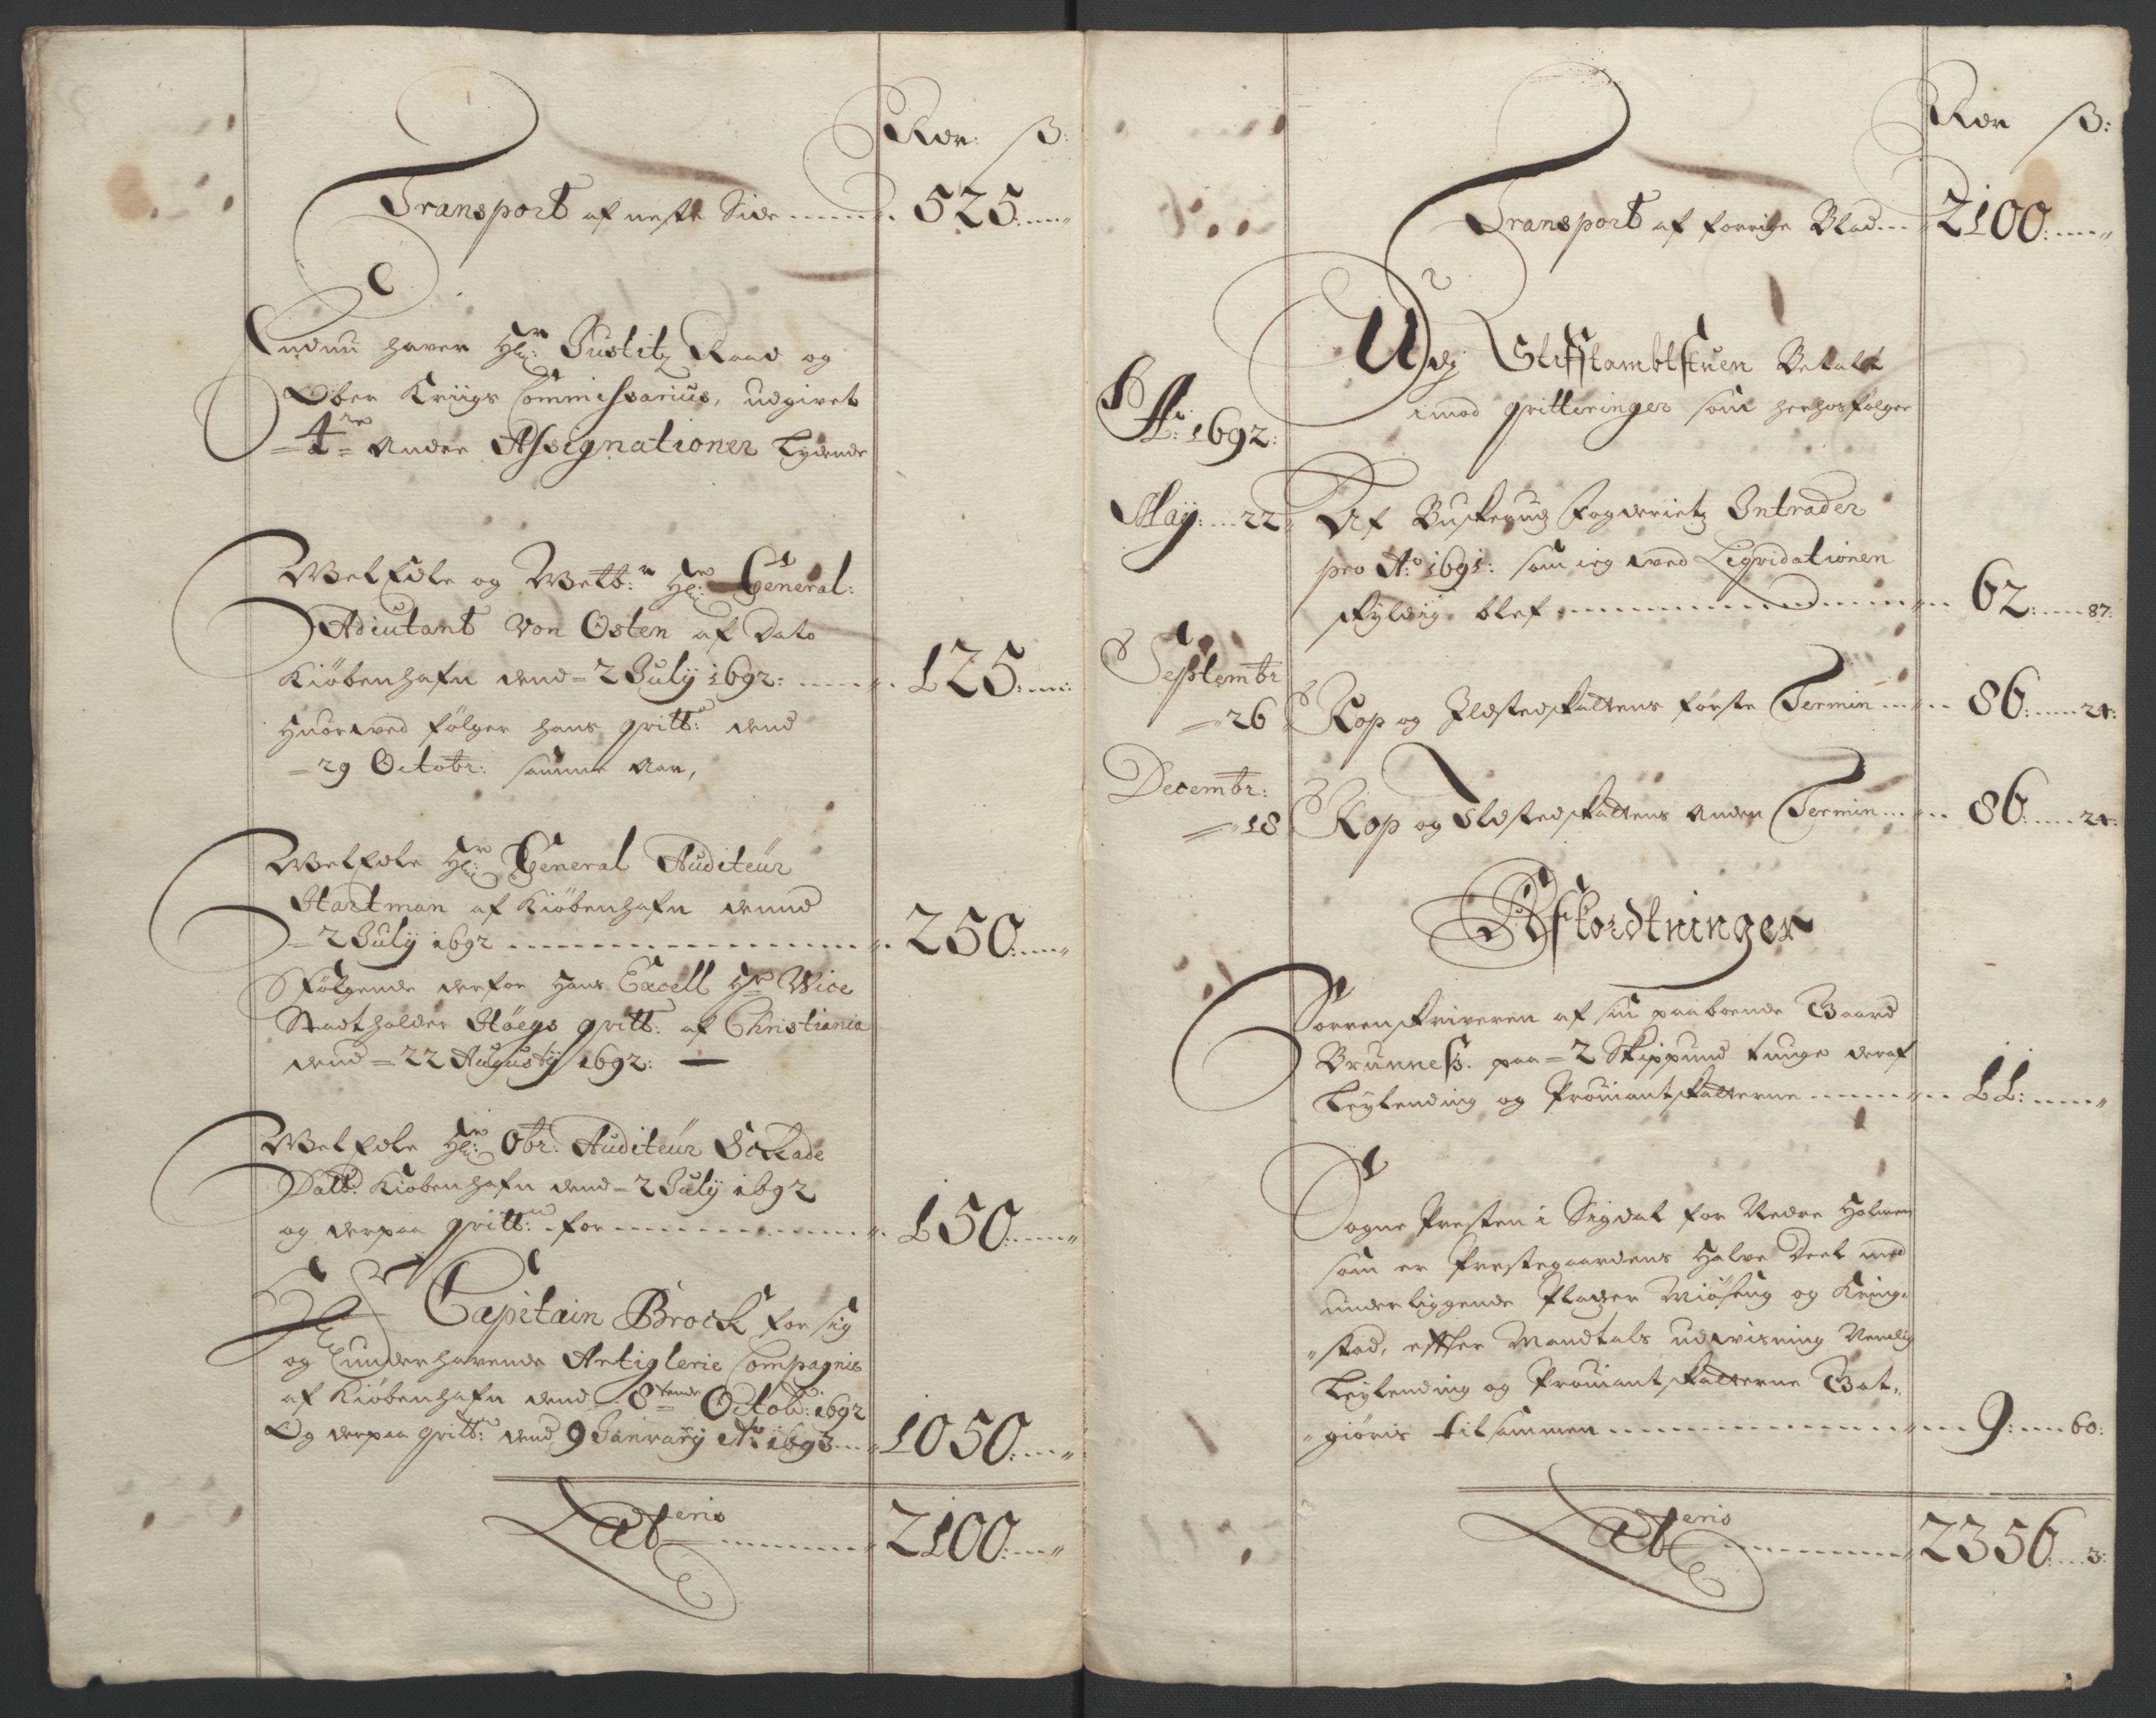 Rdr: ß:
Transport af neste Side ...... 525:....
Endnu haver Hr: Justitz Raad og
Ober Kriigs Commissarius, udgivet
4re Andre Assignationer Lydende
WelEdle og Welb:r Hr: General:
Adiutant Von Osten af Dato
Kiöbenhafn dend 2 July 1692: ...... 125:....
Huorved fölger hans qvitt: dend
29 Octobr: samme Aar,
WelEdle Hr: General Auditeür
Hartman af Kiöbenhafn dennd
2 July 1692 ...... 250:....
Fölgende derfor Hans Excell Hr Vice
Stadtholder Höegs qvitt: af Christiania
dend 22 Augusty 1692: —
WelEdle Hr: Obr: Auditeür
Datt: Kiöbenhafn dend 2 July 1692
og derpaa qvitt: for ...... 150:....
Capitain Brock for sig
og underhavende Artiglerie Compagnie
af Kiöbenhafn dend 8tende Octob: 1692
Og derpaa qvitt: dend 9 January Ao 1693 .... 1050:....
Lateris ...... 2100:....
Rdr ß:
Transport af forrige Blad .... 2100:....
Udj Stifftambtstuen Betalt
imod qvitteringer som herhos fölger
Ao: 1692:
May: .... 22 Af Buskerudz Fogderietz Intrader
pro Ao 1691: som ieg ved Liqvidationen
skyldig blef ...... 62:.... 87:
Septembr
26 Kop og Ildstedskattens förste Termin .... 86:.... 24:
Decembr:
18 Kop og Ildstedskattens Anden Termin .... 86:.... 24:
Afkordtninger
Sorrenskriveren af sin paaboende Gaard
Brunneß. paa 2 Skippund tunge deraf
Leylending og Prouiantskatterne ...... 11:....
Sogne Presten i Sigdal for Nedre Holmen
som er Prestegaardens Halve Deel med
underliggende Pladzer Miöseng og Kring-
stad, effter Mandtals udvisning Nemlig
Leylending og Prouiantskatterne Bet,
giöris tilsammen ...... 9:.... 60:
Lateris ...... 2356:.... 3: